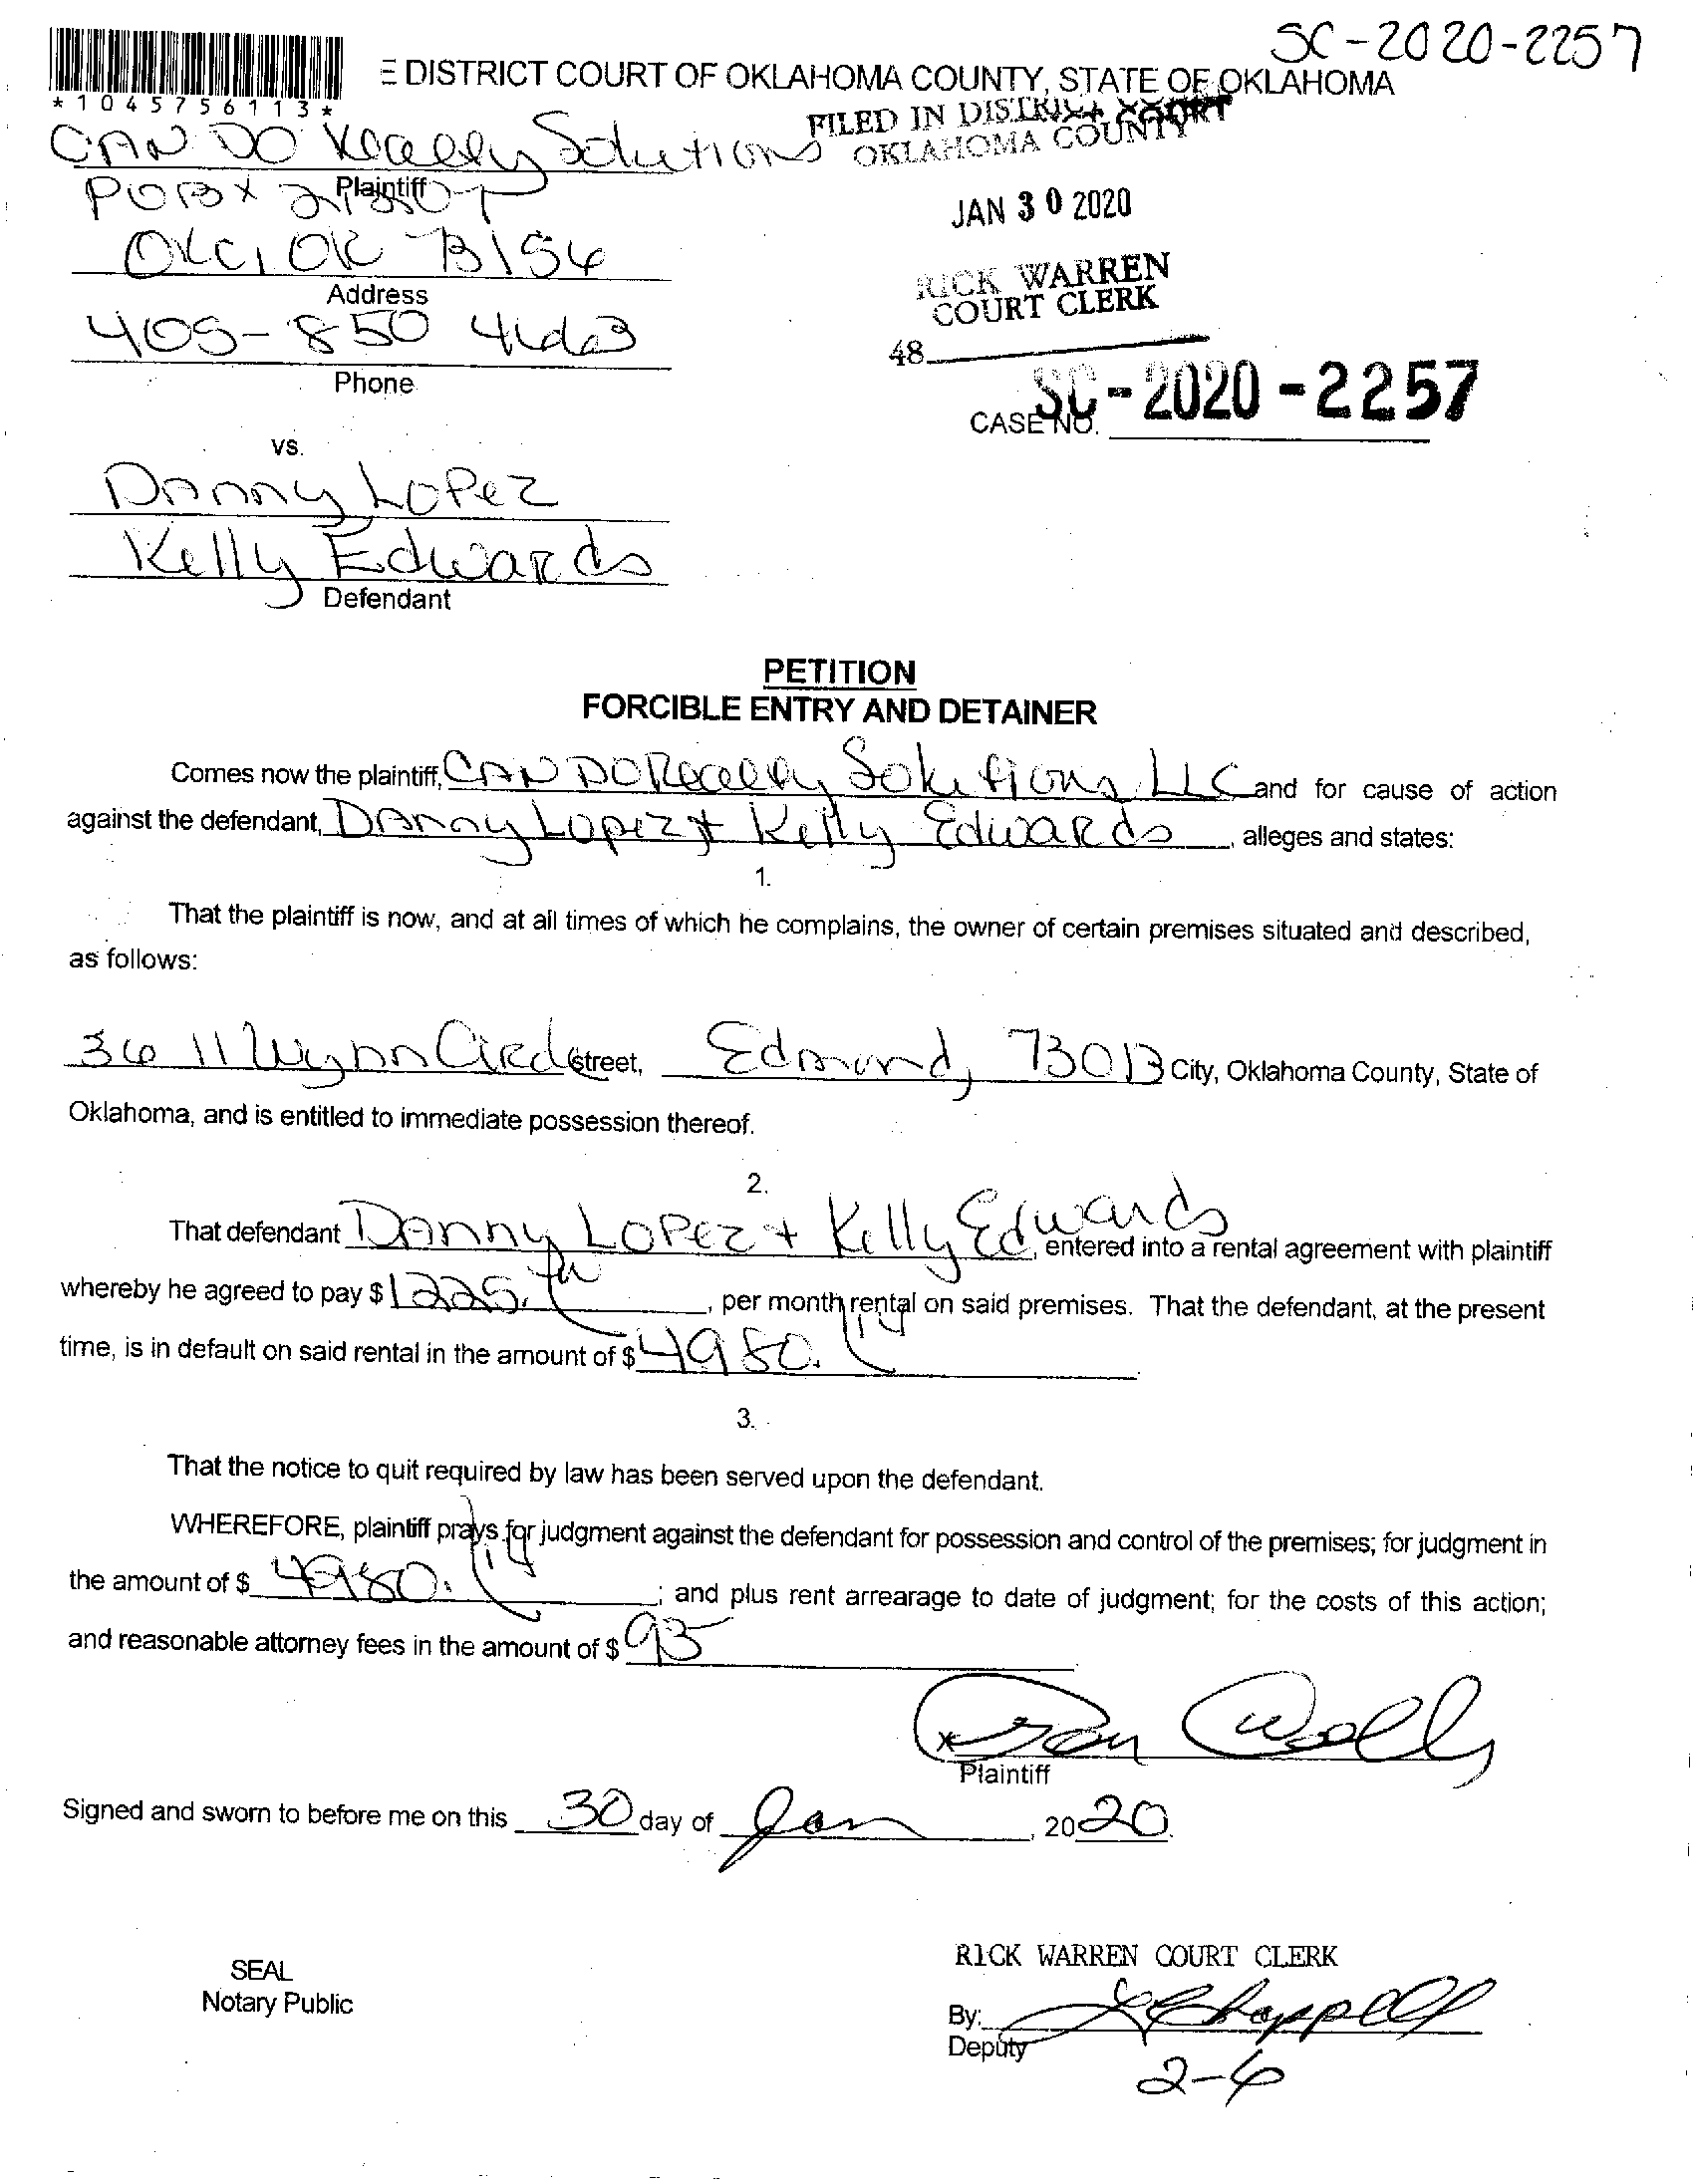 SC-2020-2257
*1045756113*
E DISTRICT COURT OF OKLAHOMA COUNTY, STATE OF OKLAHOMA
FILED IN DISTRICT COURT
OKLAHOMA COUNTY
CAN DO Realty Solutions
Plaintiff
POBX
JAN 30 2020
OKC, OK 73156
Address
RICK WARREN
COURT CLERK
405-850
Phone
48
CASE NO. SC-2020-2257
vs.
Danny Lopez
Kelly Edwards
Defendant
PETITION
FORCIBLE ENTRY AND DETAINER
Comes now the plaintiff, CAN DO Realty Solutions LLC and for cause of action
against the defendant, Danny Lopez + Kelly Edwards, alleges and states:
1.
That the plaintiff is now, and at all times of which he complains, the owner of certain premises situated and described,
as follows:
3611 Wynn Circle street, Edmond, 73013 City, Oklahoma County, State of
Oklahoma, and is entitled to immediate possession thereof.
2.
That defendant Danny Lopez + Kelly Edwards, entered into a rental agreement with plaintiff
whereby he agreed to pay $1225., per month rental on said premises. That the defendant, at the present
time, is in default on said rental in the amount of $4980.14
3.
That the notice to quit required by law has been served upon the defendant.
WHEREFORE, plaintiff prays for judgment against the defendant for possession and control of the premises; for judgment in
the amount of $4980.14; and plus rent arrearage to date of judgment; for the costs of this action;
and reasonable attorney fees in the amount of $93
x
Plaintiff
Signed and sworn to before me on this 30 day of Jan, 2020.
SEAL
Notary Public
RICK WARREN COURT CLERK
By: Chappell
Deputy
2-6